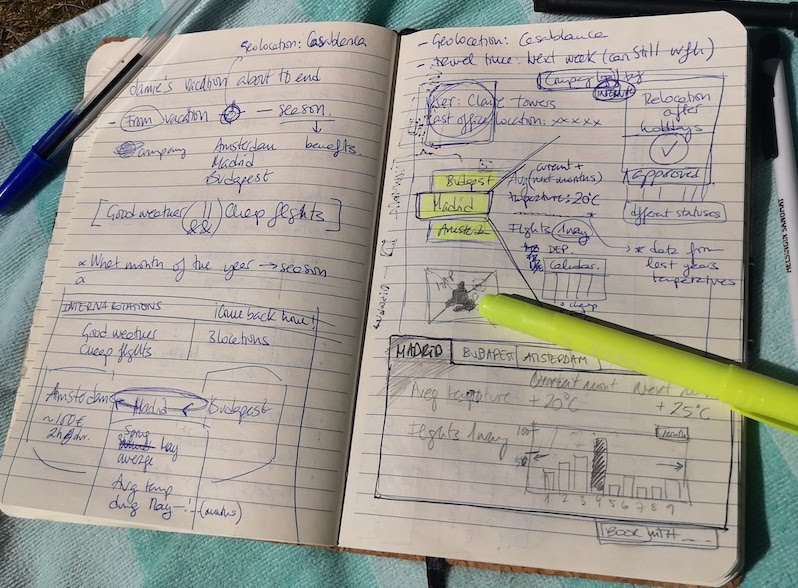 Geolocation: Casablanca
vacation about to end
From vacation — season
↓
company Amsterdam benefits.
Madrid
Budapest
[Good weather (|| &&) Cheap flights]
* What month of the year → season
INTERNA ROTATIONS (Come back home!
Good weather 3 locations
Cheap flights
Amsterdam Madrid Budapest
~100€
Avg temp
- Geolocation: Casablanca
- travel time: Next week (can still wfh)
User: Claire Towers
Last office location: xxxxx
Relocation
after
holidays
approved
different statuses
Budapest
Madrid
Amsterdam
current +
Avg (next months)
: 20°C
Flights 1way
DEP.
Calendar.
> * data from
last years
temperatures
MAP
MADRID BUDAPEST AMSTERDAM
Current mont Next
+20°C +25°C
Flights 1way 100
50
1 2 3 4 5 6 7 8 9
BOOK WITH _ _ _